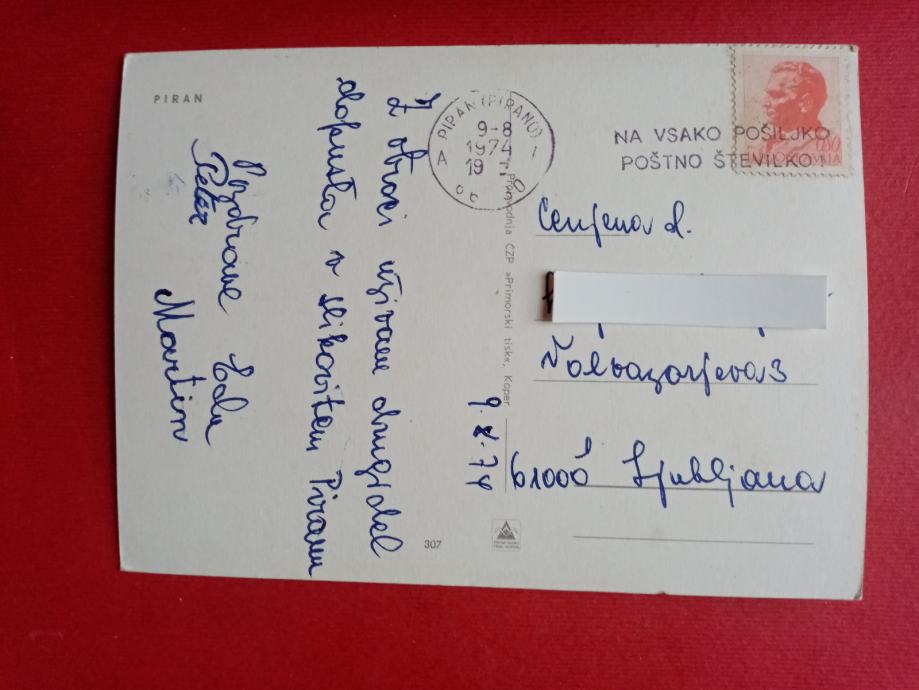 PIRAN
Z otroci uživam drugi del
dopusta v slikovitem Piranu
Pozdrave Edu
Peter
Martin
9. 8. 74
307
Proizvodnja ČZP »Primorski tisk«, Koper
PIRAN (PIRANO)
9-8
1974
19
A
NA VSAKO POŠILJKO
POŠTNO ŠTEVILKO!
0,80
Cenjena d.
Valvazorjeva 3
61000 Ljubljana